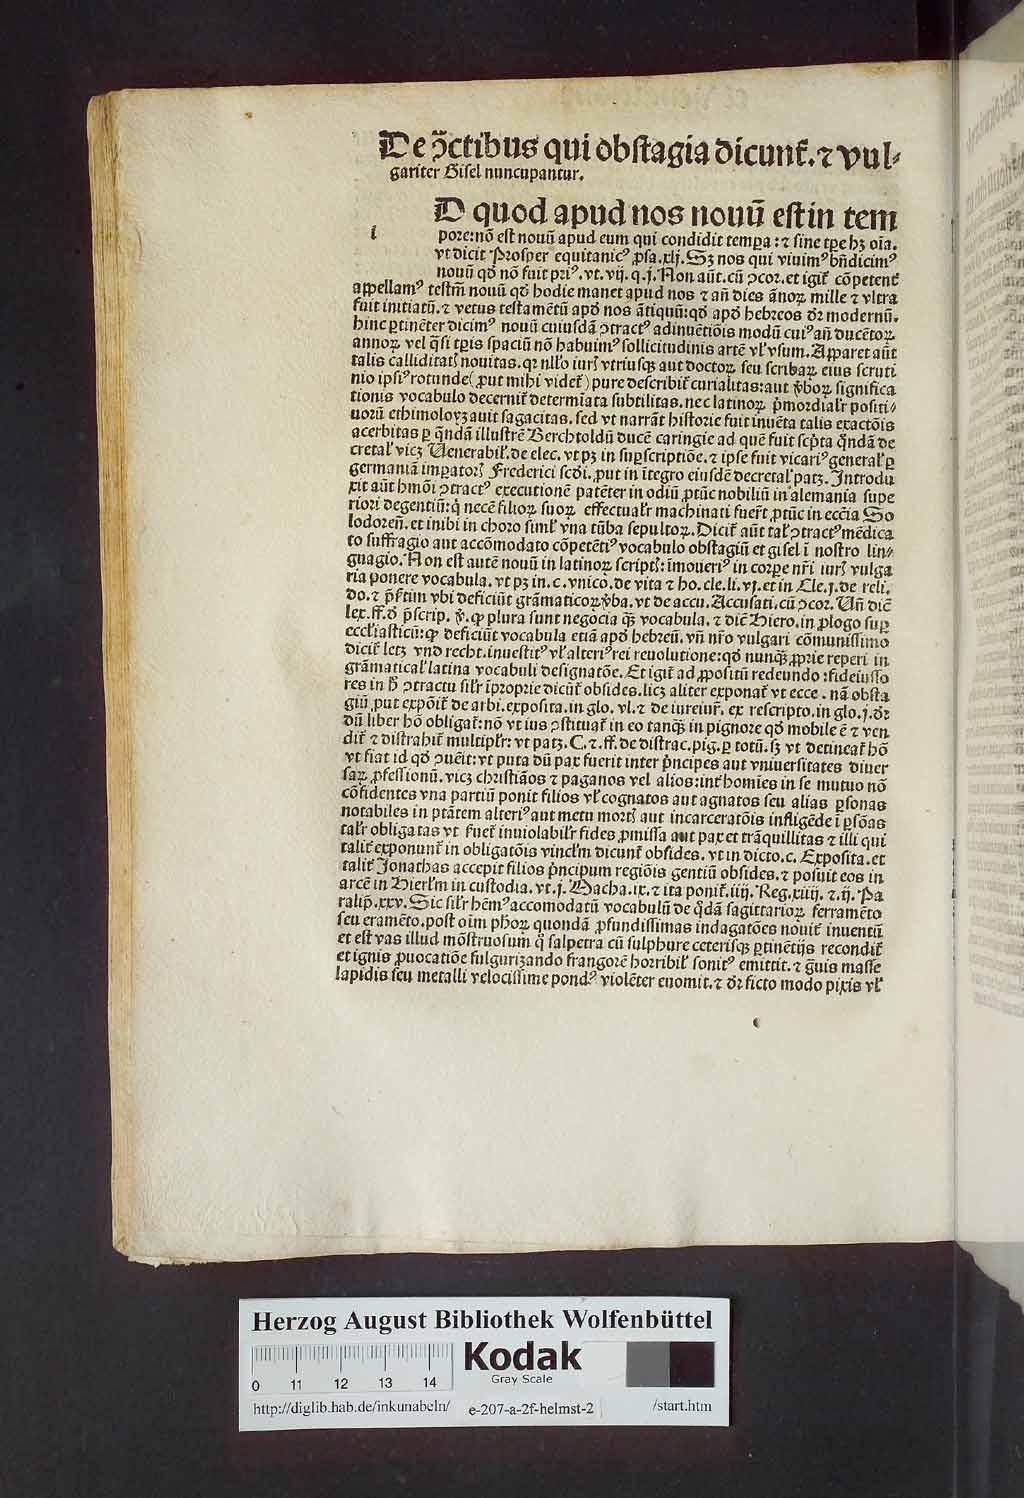 De ꝯ̄ctibus qui obſtagia dicunt᷑. ⁊ vul⸗
gariter Giſel nuncupantur.
i
D quod apud nos nouū eſt in tem
pore: nō eſt nouū apud eum qui condidit tempa: ⁊ ſine tpe hꝫ oīa.
vt dicit Proſper equitanicꝰ ꝓſa. xlj. Sꝫ nos qui viuimꝰ bn̄dicimꝰ
nouū qď nō fuit priꝰ. vt. vij. q. j. Non aūt. cū ꝯcor. et igit᷑ cōpetent᷑
appellamꝰ teſtm̄ nouū qď hodie manet apud nos ⁊ an̄ dies ānoꝝ mille ⁊ vltra
fuit initiatū. ⁊ vetus teſtamētū apď nos ātiquū: qď apď hebreos dr̄ modernū.
hinc ꝑtinēter dicimꝰ nouū cuiuſdā ꝯtractꝰ adinuētiōis modū cuiꝰ an̄ ducētoꝝ
annoꝝ vel q̄ſi tꝑis ſpaciū nō habuimꝰ ſollicitudinis artē vl᷑ vſum. Apparet aūt
talis calliditatꝭ nouitas. qꝛ nll̓o iurꝭ vtriuſqꝫ aut doctoꝝ ſeu ſcribaꝝ eius ſcruti
nio ipſiꝰ rotunde (ꝓut mihi videt᷑) pure deſcribit᷑ curialitas: aut v̓boꝝ ſignifica
tionis vocabulo decernit᷑ determīata ſubtilitas. nec latinoꝝ p̓mordial᷑r poſiti⸗
uorū ethimoloyꝫauit ſagacitas. ſed vt narrāt hiſtorie fuit inuēta talis exactōis
acerbitas ꝑ q̄ndā illuſtrē Berchtoldū ducē caringie ad quē fuit ſcp̄ta q̄ndā de
cretal᷑ vicꝫ Venerabil᷑. de elec. vt pꝫ in ſuꝑſcriptiōe. ⁊ ipſe fuit vicariꝰ general᷑ ꝑ
germaniā imꝑatorꝭ Frederici ſcďi. ꝓut in ītegro eiuſdē decretal᷑ patꝫ. Introdu
xit aūt hmōi ꝯtractꝰ executionē patēter in odiū ꝓtūc nobiliū in alemania ſupe
riori degentiū: q̓ necē filioꝝ ſuoꝝ effectual᷑r machinati fuer̄t ꝓtūc in eccīa So
lodoren̄. et inibi in choro ſiml᷑ vna tūba ſepultoꝝ. Dicit᷑ aūt tal᷑ ꝯtractꝰ mēdica
to ſuffragio aut accōmodato cōpetētiꝰ vocabulo obſtagiū et giſel ī noſtro lin⸗
guagio. Non eſt autē nouū in latinoꝝ ſcriptꝭ: īmoueriꝰ in corꝑe nr̄i iurꝭ vulga
ria ponere vocabula. vt pꝫ in. c. vnico. de vita ⁊ ho. cle. li. vj. et in Cle. j. de reli.
do. ⁊ p̄ſtim vbi deficiūt grāmaticoꝝ v̓ba. vt de accu. Accuſati. cū ꝯcor. Un̄ dic̄
lex. ff. ď p̄ſcrip. v̓. ꝙ plura ſunt negocia qͣꝫ vocabula. ⁊ dic̄ Hiero. in ꝓlogo ſuꝑ
eccl᷑iaſticū: ꝙ deficiūt vocabula etiā apď hebreū. vn̄ nr̄o vulgari cōmuniſſimo
dicit᷑ letꝫ vnd recht. inueſtitꝰ vl᷑ alteriꝰ rei reuolutione: qď nunqͣꝫ ꝓprie reperi in
grāmatical᷑ latina vocabuli deſignatōe. Et igit᷑ ad ꝓpoſitū redeundo: fideiuſſo
res in h̓ ꝯtractu ſil᷑r īproprie dicūt᷑ obſides. licꝫ aliter exponat᷑ vt ecce. nā obſta
giū ꝓut expōit᷑ de arbi. expoſita. in glo. vl. ⁊ de iureiur̄. ex reſcripto. in glo. j. dr̄
dū liber hō obligat᷑: nō vt ius ꝯſtituat᷑ in eo tanqͣꝫ in pignore qď mobile ē ⁊ ven
dit᷑ ⁊ diſtrahit᷑ multipl᷑r: vt patꝫ. C. ⁊. ff. de diſtrac. pig. ꝑ totū. ſꝫ vt detineat᷑ hō
vt fiat id qď ꝯuēit: vt puta dū pax fuerit inter p̓ncipes aut vniuerſitates diuer
ſaꝝ ꝓfeſſionū. vicꝫ chriſtiāos ⁊ paganos vel alios: int᷑ homīes in ſe mutuo nō
cōfidentes vna partiū ponit filios vl᷑ cognatos aut agnatos ſeu alias ꝑſonas
notabiles in ptātem alteriꝰ aut metu mortꝭ aut incarceratōis infligēde ī ꝑſōas
tal᷑r obligatas vt fuer̄t inuiolabil᷑r fides ꝓmiſſa aut pax et trāquillitas ⁊ illi qui
talit᷑ exponunt᷑ in obligatōis vincl᷑m dicunt᷑ obſides. vt in dicto. c. Expoſita. et
talit᷑ Jonathas accepit filios p̓ncipum regiōis gentiū obſides. ⁊ poſuit eos in
arcē in Hierl᷑m in cuſtodia. vt. j. Macha. ix. ⁊ ita ponit᷑. iiij. Reg. xiiij. ⁊. ij. Pa
ralip̄. xxv. Sic ſil᷑r hēmꝰ accomodatū vocabulū de q̓dā ſagittarioꝝ ferramēto
ſeu eramēto. poſt oīm ph̓oꝝ quondā ꝓfundiſſimas indagatōes nouit᷑ inuentū
et eſt vas illud mōſtruoſum q̓ ſalpetra cū ſulphure ceteriſqꝫ ꝑtinētijs recondit᷑
et ignis ꝓuocatiōe fulgurizando frangorē horribil᷑ ſonitꝰ emittit. ⁊ g̓uis maſſe
lapidis ſeu metalli velociſſime pondꝰ violēter euomit. ⁊ dr̄ ficto modo pixis vl᷑
Herzog August Bibliothek Wolfenbüttel
Kodak
Gray Scale
0 11 12 13 14
http://diglib.hab.de/inkunabeln/ e-207-a-2f-helmst-2 /start.htm